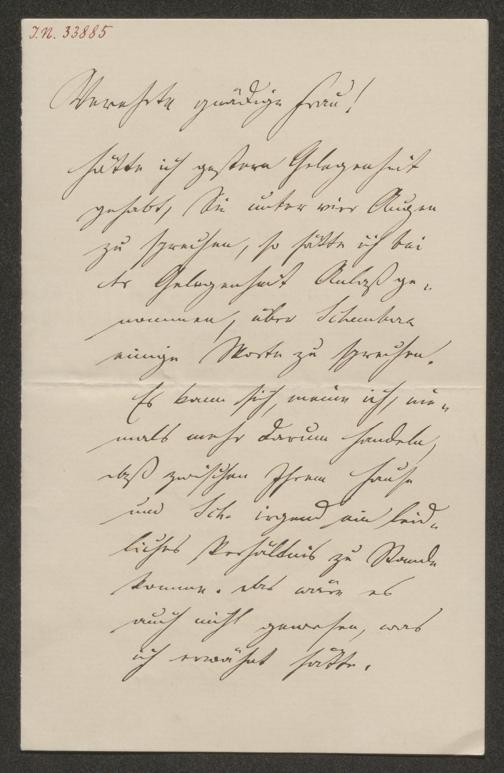 J.N. 33885
Verehrte gnädige Frau!
hätte ich gestern Gelegenheit
gehabt, Sie unter vier Augen
zu sprechen, so hätte ich bei
der Gelegenheit Anlaß ge-
nommen, über
einige Worte zu sprechen.
Es kann sich, meine ich, nie-
mals mehr darum handeln,
daß zwischen Ihrem Hause
und Sch. irgend ein leid-
liches Verhältnis zu Stande
komme. Das wäre es
auch nicht gewesen, was
ich erwähnt hätte.